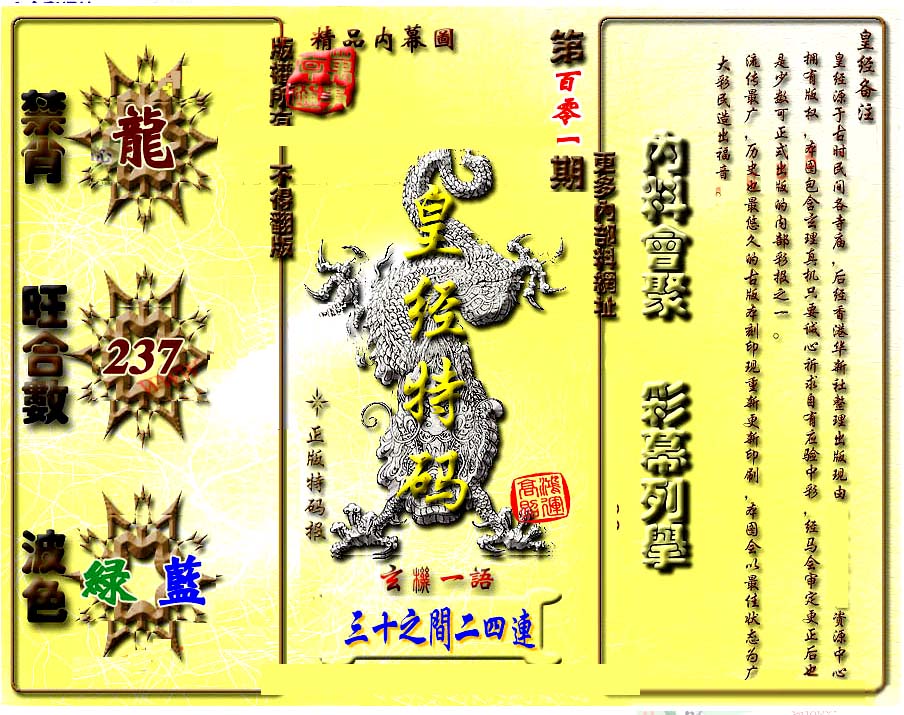 精品内幕圖
第百零一期
版權所有
不得翻版
更多內部料網址
禁肖
龍
旺合數
237
波色
綠 藍
皇经特码
正版特码报
鴻運
高照
玄機一語
三十之間二四連
内料會聚
彩幕列舉
皇经备注
皇经源于古时民间各寺庙，后经香港华新社整理出版现由 资源中心
拥有版权，本图包含玄理真机只要诚心祈求自有应验中彩，经马会审定更正后也
是少数可正式出版的内部彩报之一。
流传最广，历史也最悠久的古版本刻印现重新更新印刷，本图会以最佳状态为广
大彩民造出福音